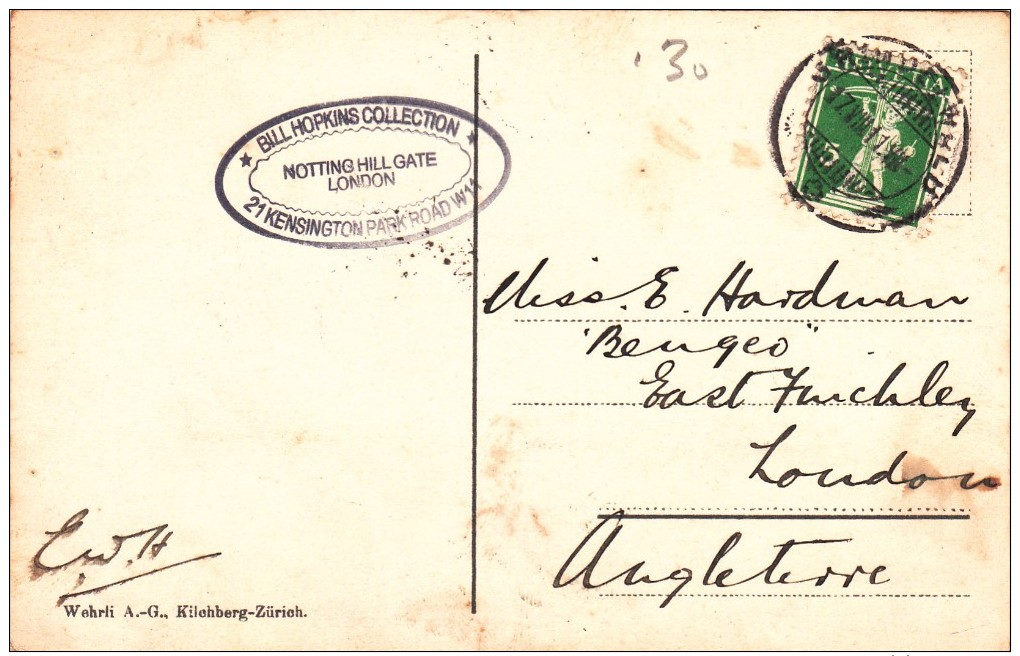 30
HELVETIA
BILL HOPKINS COLLECTION
NOTTING HILL GATE
LONDON
21 KENSINGTON PARK ROAD W11
Miss. E. Hardman
"Bengeo"
East Finchley
London
Angleterre
E.W.H
Wehrli A.-G., Kilchberg-Zürich.